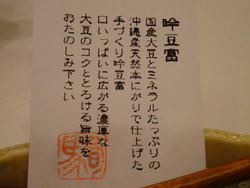 吟豆富
国産大豆とミネラルたっぷりの
沖縄産天然本にがりで仕上げた
手づくり吟豆富
口いっぱいに広がる濃厚な
大豆のコクととろける旨味を
おたのしみ下さい